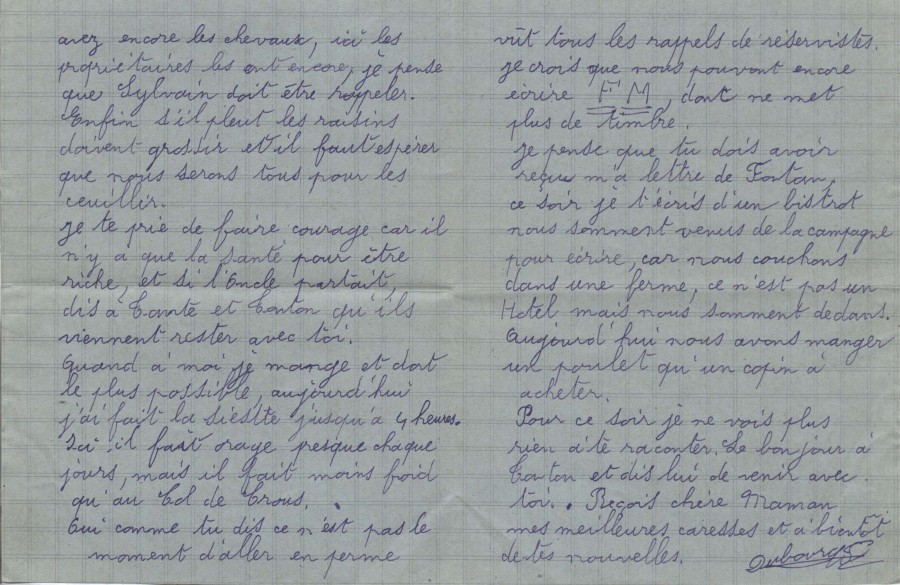 avez encore les chevaux, ici les
propriétaires les ont encore, je pense
que Sylvain doit être rappeler.
Enfin s'il pleut les raisins
doivent grossir et il faut espérer
que nous serons tous pour les
ceuillir.
Je te prie de faire courage car il
n'y a que la santé pour être
riche, et si l'Oncle partait,
dis à Tante et Tonton qu'ils
viennent rester avec toi.
Quand à moi je mange et dort
le plus possible, aujourd'hui
j'ai fait la siéstte jusqu'à 4 heures.
Ici il fait orage presque chaque
jours, mais il fait moins froid
qu'au Col de Crous.
Oui comme tu dis ce n'est pas le
moment d'aller en ferme
vût tous les rappels de réservistes.
Je crois que nous pouvont encore
écrire F M dont ne met
plus de timbre.
Je pense que tu dois avoir
reçu m'a lettre de Fontan,
ce soir je t'écris d'un bistrot
nous somment venus de la campagne
pour écrire, car nous couchons
dans une ferme, ce n'est pas un
Hotel mais nous somment dedans.
Aujourd'hui nous avons manger
un poulet qu'un copin à
acheter.
Pour ce soir je ne vois plus
rien à te raconter. Le bonjour à
Tonton et dis lui de venir avec
toi. Reçois chère Maman
mes meilleures caresses et à bientôt
de tes nouvelles.